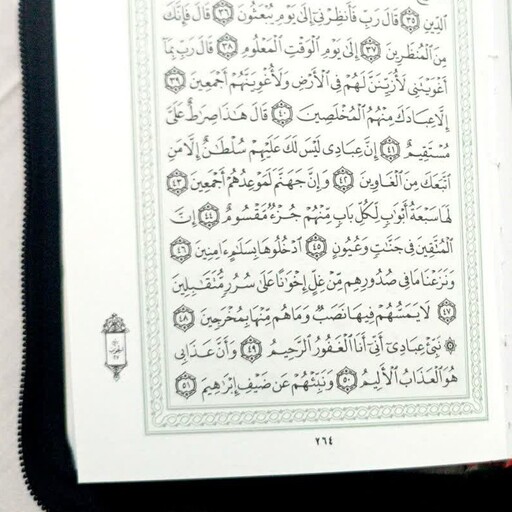 ٱلدِّينِ ٣٥ قَالَ رَبِّ فَأَنظِرْنِىٓ إِلَىٰ يَوْمِ يُبْعَثُونَ ٣٦ قَالَ فَإِنَّكَ
مِنَ ٱلْمُنظَرِينَ ٣٧ إِلَىٰ يَوْمِ ٱلْوَقْتِ ٱلْمَعْلُومِ ٣٨ قَالَ رَبِّ بِمَآ
أَغْوَيْتَنِى لَأُزَيِّنَنَّ لَهُمْ فِى ٱلْأَرْضِ وَلَأُغْوِيَنَّهُمْ أَجْمَعِينَ ٣٩
إِلَّا عِبَادَكَ مِنْهُمُ ٱلْمُخْلَصِينَ ٤٠ قَالَ هَٰذَا صِرَٰطٌ عَلَىَّ
مُسْتَقِيمٌ ٤١ إِنَّ عِبَادِى لَيْسَ لَكَ عَلَيْهِمْ سُلْطَٰنٌ إِلَّا مَنِ
ٱتَّبَعَكَ مِنَ ٱلْغَاوِينَ ٤٢ وَإِنَّ جَهَنَّمَ لَمَوْعِدُهُمْ أَجْمَعِينَ ٤٣
لَهَا سَبْعَةُ أَبْوَٰبٍ لِّكُلِّ بَابٍ مِّنْهُمْ جُزْءٌ مَّقْسُومٌ ٤٤ إِنَّ
ٱلْمُتَّقِينَ فِى جَنَّٰتٍ وَعُيُونٍ ٤٥ ٱدْخُلُوهَا بِسَلَٰمٍ ءَامِنِينَ ٤٦
وَنَزَعْنَا مَا فِى صُدُورِهِم مِّنْ غِلٍّ إِخْوَٰنًا عَلَىٰ سُرُرٍ مُّتَقَٰبِلِينَ
٤٧ لَا يَمَسُّهُمْ فِيهَا نَصَبٌ وَمَا هُم مِّنْهَا بِمُخْرَجِينَ ٤٨
۞ نَبِّئْ عِبَادِىٓ أَنِّىٓ أَنَا ٱلْغَفُورُ ٱلرَّحِيمُ ٤٩ وَأَنَّ عَذَابِى
هُوَ ٱلْعَذَابُ ٱلْأَلِيمُ ٥٠ وَنَبِّئْهُمْ عَن ضَيْفِ إِبْرَٰهِيمَ ٥١
٢٦٤